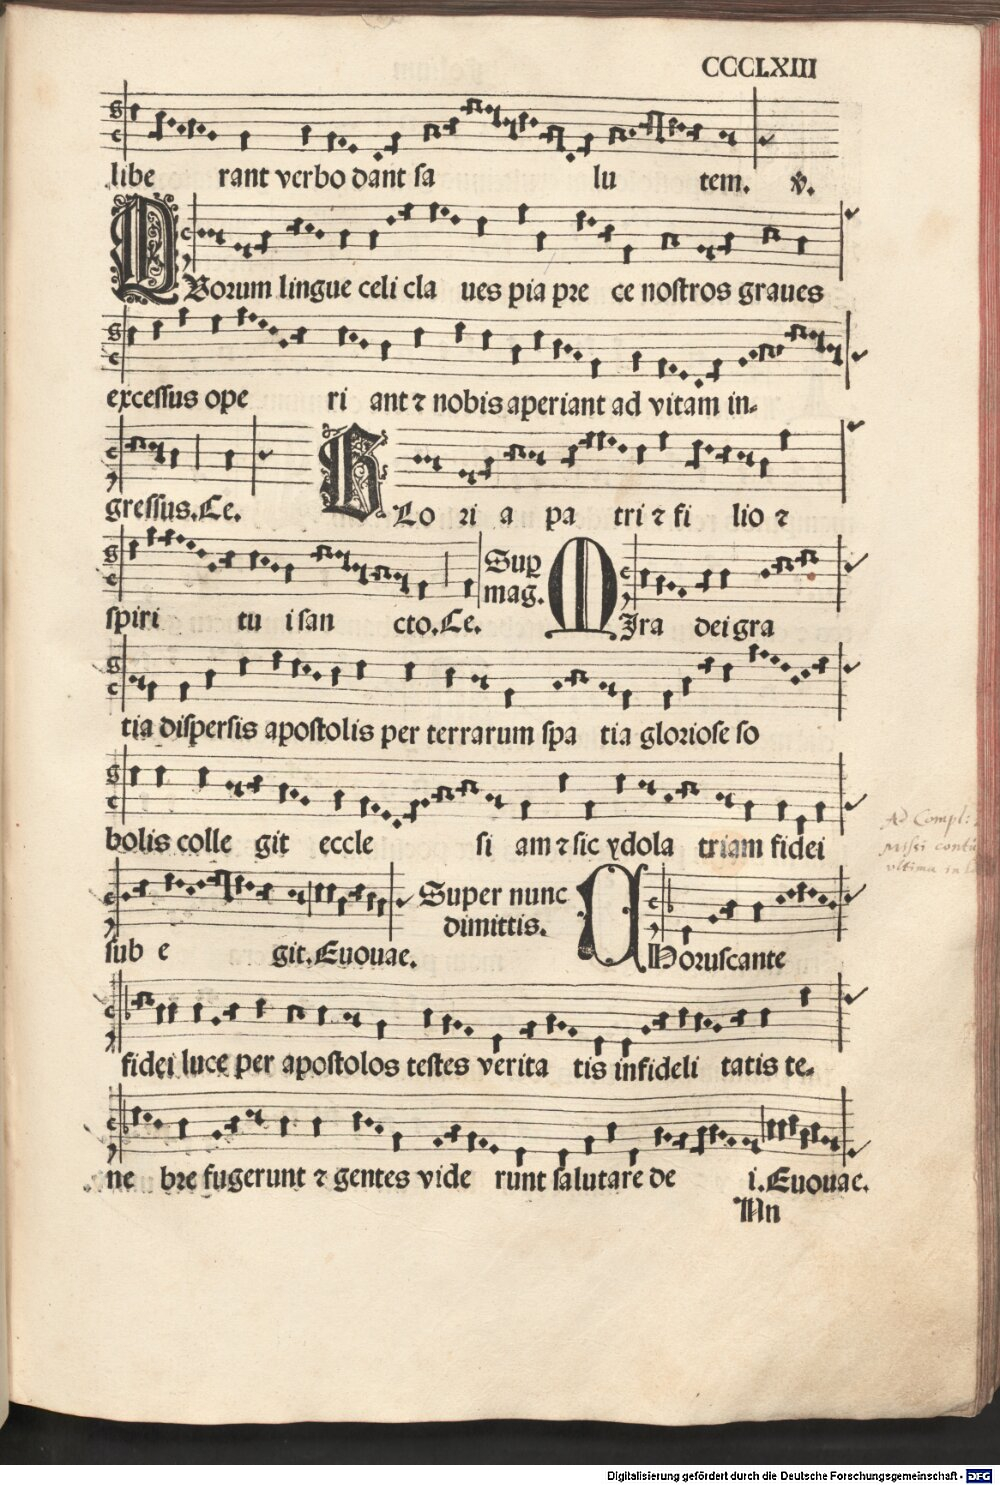 CCCLXIII
libe rant verbo dant sa lu tem. ℣.
QVorum lingue celi cla ues pia pre ce nostros graues
excessus ope ri ant ⁊ nobis aperiant ad vitam in-
gressus. Ce. GLo ri a pa tri ⁊ fi lio ⁊
spiri tu i san cto. Ce. Sup mag. MIra dei gra
tia dispersis apostolis per terrarum spa tia gloriose so
bolis colle git eccle si am ⁊ sic ydola triam fidei
sub e git. Euouae. Super nunc dimittis. CHoruscante
fidei luce per apostolos testes verita tis infideli tatis te-
ne bre fugerunt ⁊ gentes vide runt salutare de i. Euouae.
Mn
Ad Compl:
ultima in
Digitalisierung gefördert durch die Deutsche Forschungsgemeinschaft - DFG